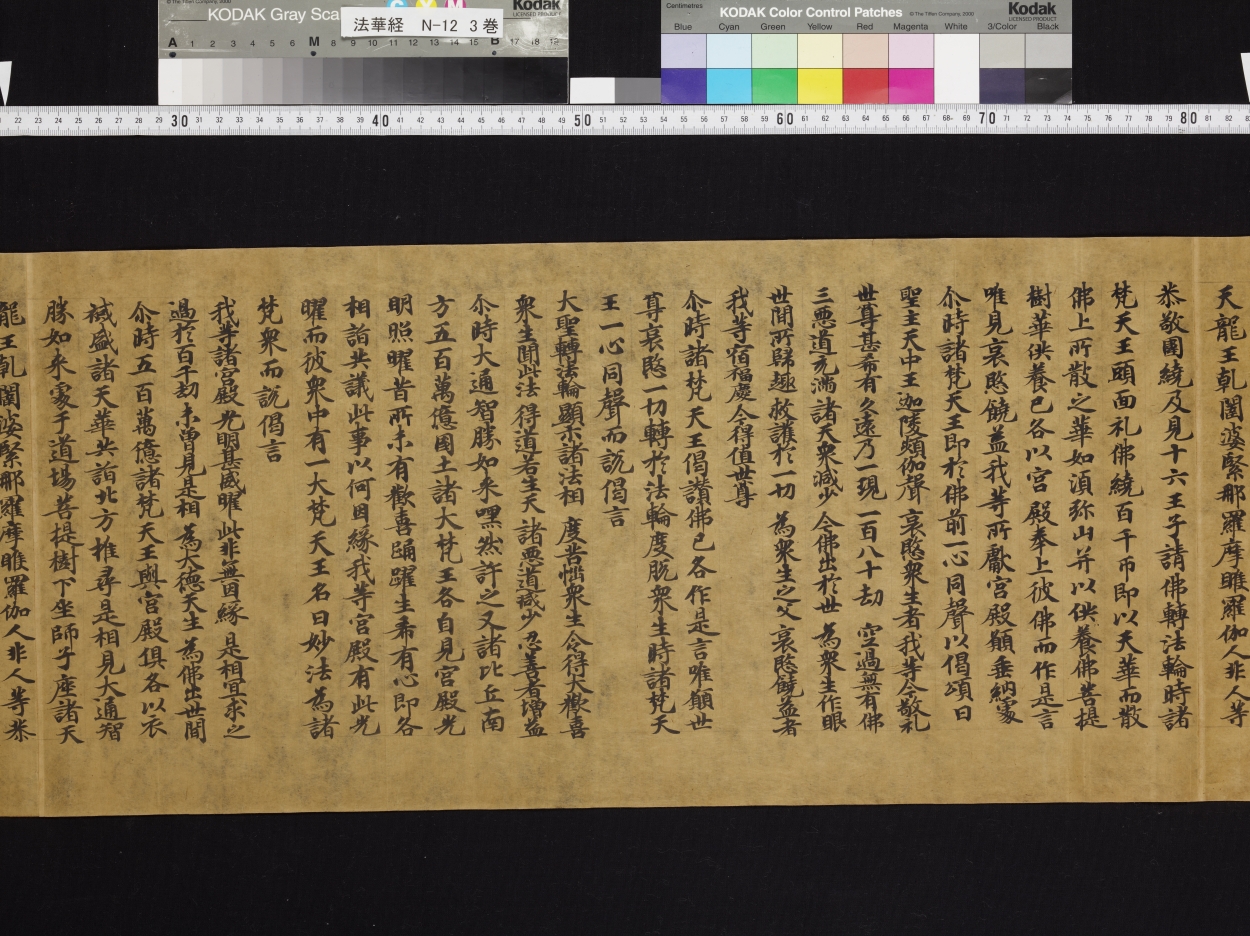 KODAK Gray Scale
法華経 N-12 3巻
Kodak
LICENSED PRODUCT
A 1 2 3 4 5 6 M 8 9 10 11 12 13 14 15 B 17 18 19
Centimetres
KODAK Color Control Patches
© The Tiffen Company, 2000
Kodak
LICENSED PRODUCT
Blue Cyan Green Yellow Red Magenta White 3/Color Black
22 23 24 25 26 27 28 29 30 31 32 33 34 35 36 37 38 39 40 41 42 43 44 45 46 47 48 49 50 51 52 53 54 55 56 57 58 59 60 61 62 63 64 65 66 67 68 69 70 71 72 73 74 75 76 77 78 79 80 81 82
天龍王乹闥婆緊那羅摩睺羅伽人非人等
恭敬圍繞及見十六王子請佛轉法輪時諸
梵天王頭面礼佛繞百千帀即以天華而散
佛上所散之華如湏弥山并以供養佛菩提
樹華供養已各以宮殿奉上彼佛而作是言
唯見哀愍饒益我等所獻宮殿願垂納處
尒時諸梵天王即於佛前一心同聲以偈頌曰
聖主天中王 迦陵頻伽聲 哀愍衆生者 我等今敬礼
世尊甚希有 久遠乃一現 一百八十劫 空過無有佛
三惡道充滿 諸天衆減少 今佛出於世 為衆生作眼
世間所歸趣 救護於一切 為衆生之父 哀愍饒益者
我等宿福慶 今得值世尊
尒時諸梵天王偈讚佛已各作是言唯願世
尊哀愍一切轉於法輪度脫衆生時諸梵天
王一心同聲而說偈言
大聖轉法輪 顯示諸法相 度苦惱衆生 令得大歡喜
衆生聞此法 得道若生天 諸惡道減少 忍善者增益
尒時大通智勝如來嘿然許之又諸比丘南
方五百萬億國土諸大梵王各自見宮殿光
明照曜昔所未有歡喜踊躍生希有心即各
相詣共議此事以何因緣我等宮殿有此光
曜而彼衆中有一大梵天王名曰妙法為諸
梵衆而說偈言
我等諸宮殿 光明甚威曜 此非無因緣 是相宜求之
過於百千劫 未曾見是相 為大德天生 為佛出世間
尒時五百萬億諸梵天王與宮殿俱各以衣
裓盛諸天華共詣北方推尋是相見大通智
勝如來處于道場菩提樹下坐師子座諸天
龍王乹闥婆緊那羅摩睺羅伽人非人等恭